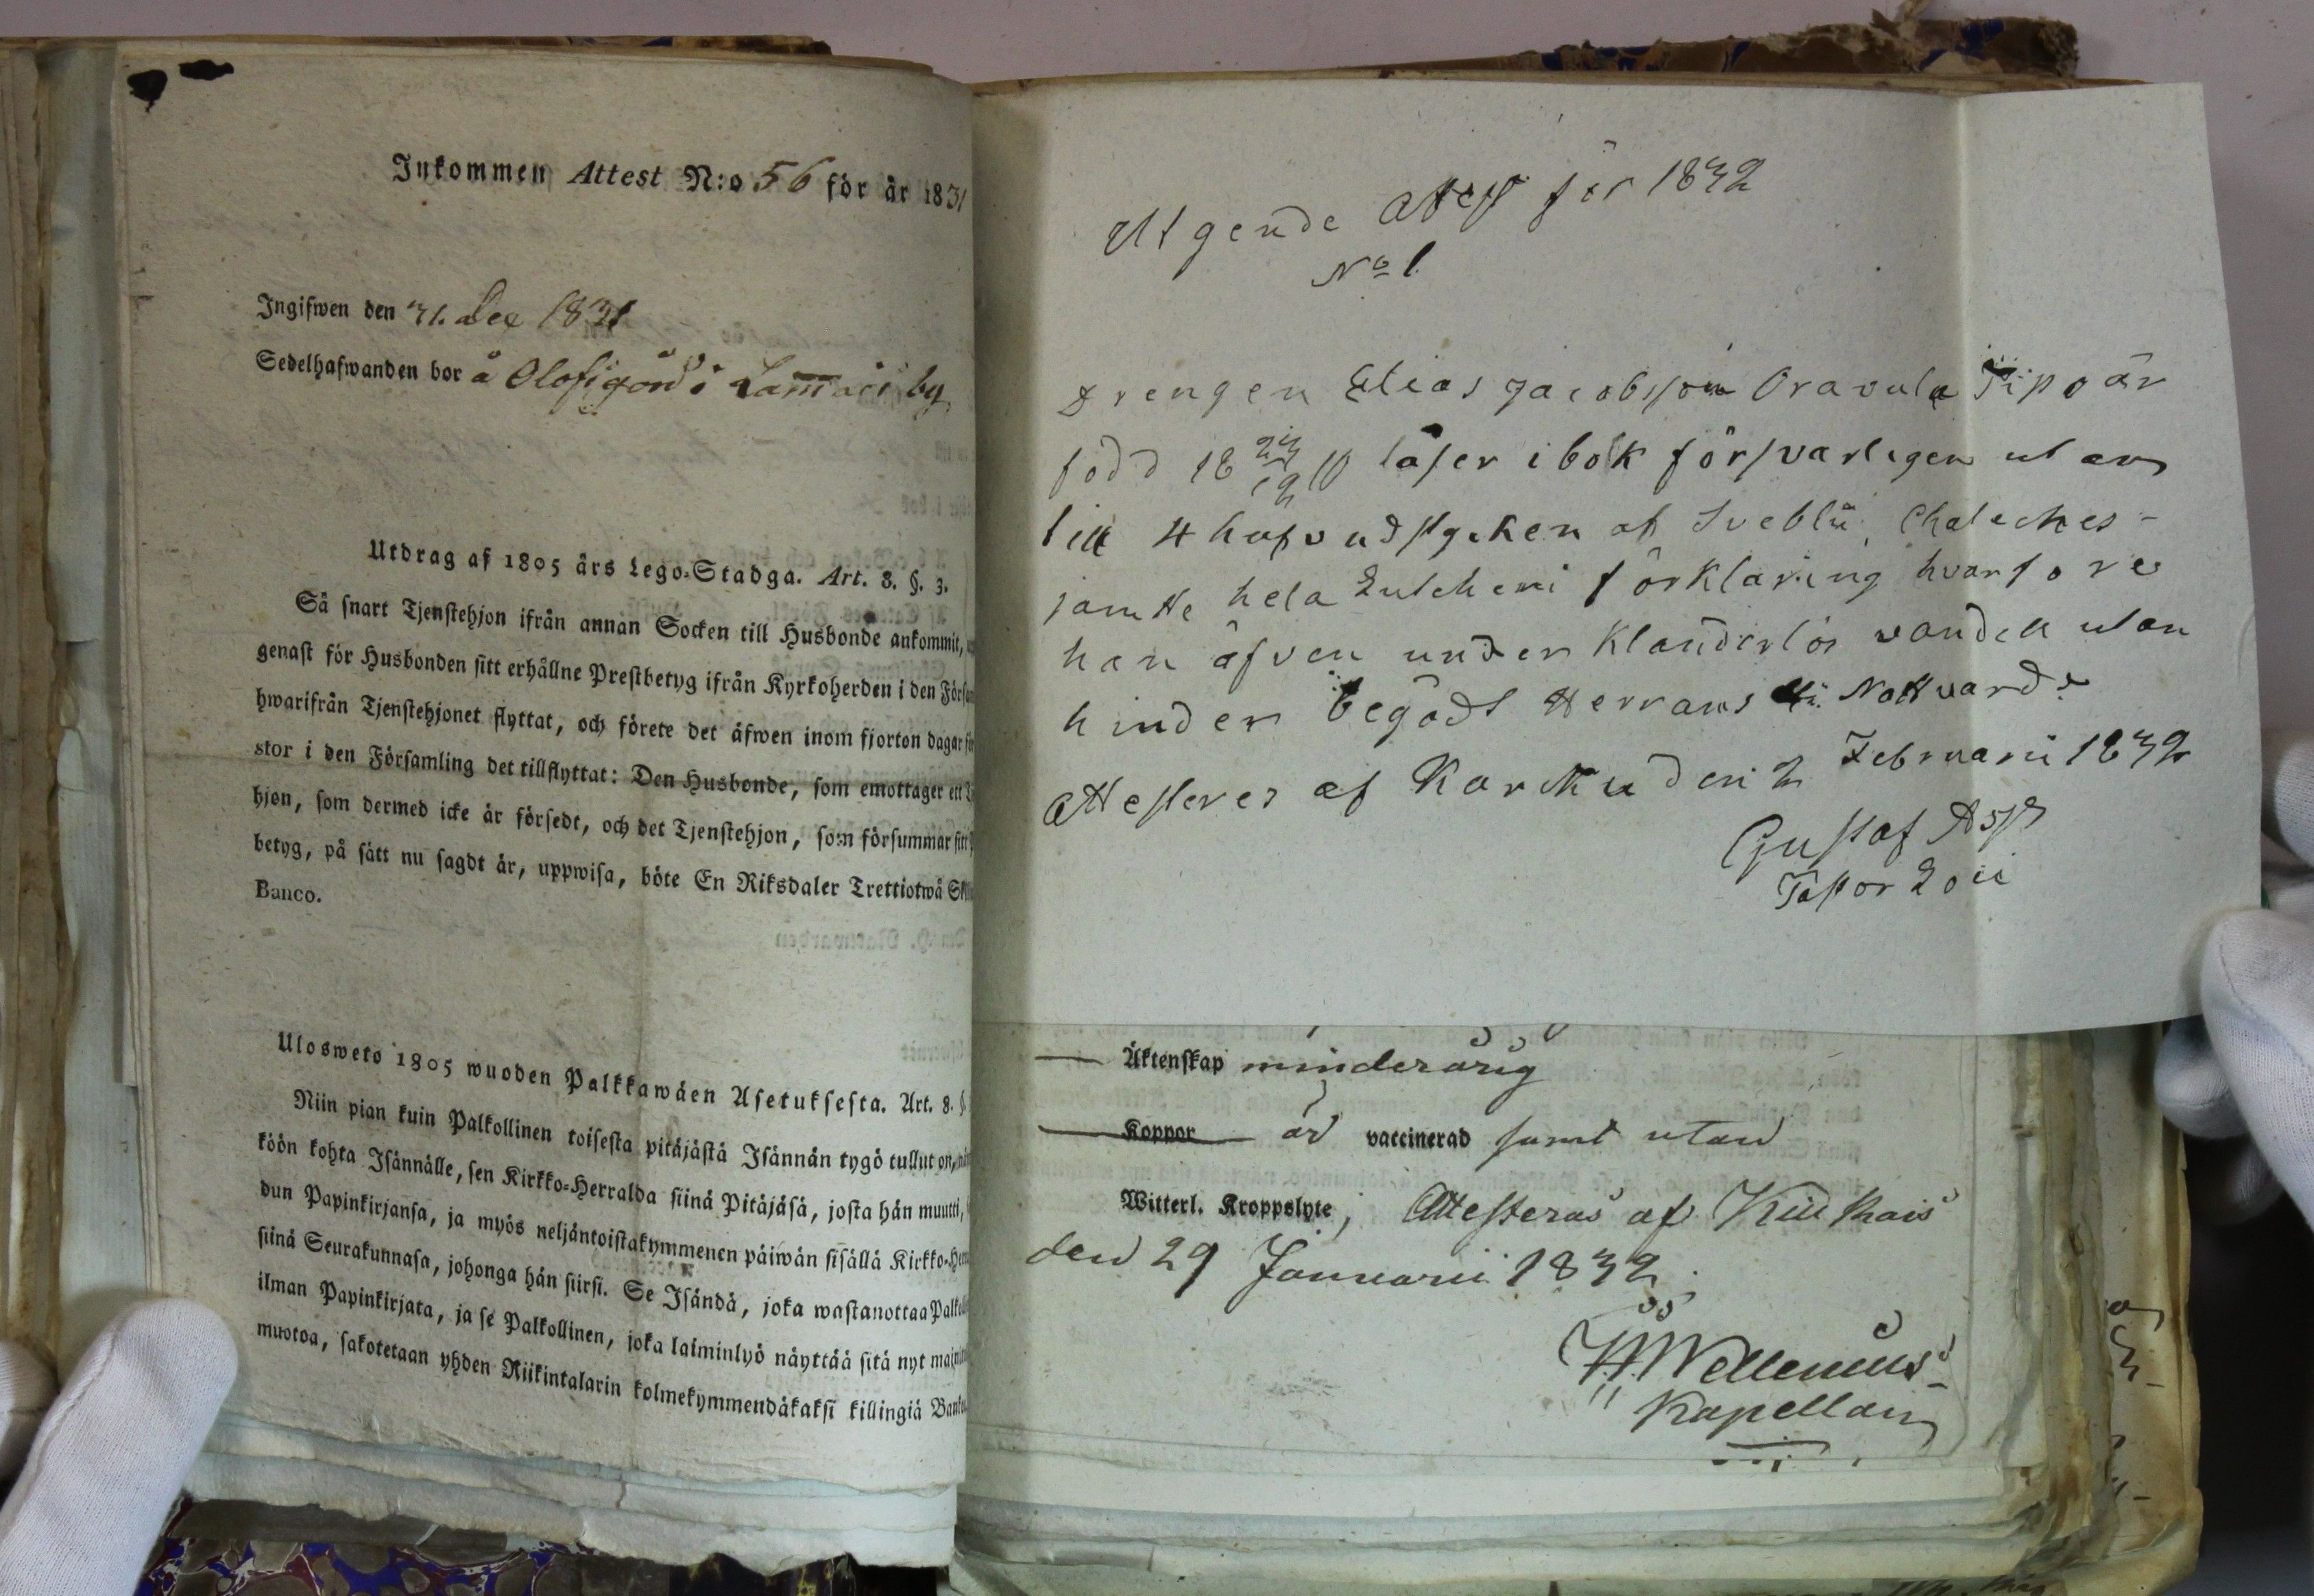 Inkommen Attest N:o 56 för år 1831
Ingifwen den 31. Dec 1831
Sedelhafwanden bor å Olofsgård i by
Utdrag af 1805 års Lego-Stadga. Art. 8. §. 3.
Så snart Tjenstehjon ifrån annan Socken till Husbonde ankommit,
genast för Husbonden sitt erhållne Prestbetyg ifrån Kyrkoherden i den
hwarifrån Tjenstehjonet flyttat, och förete det äfwen inom fjorton dagar
stor i den Församling det tillflyttat: Den Husbonde, som emottager ett
hjon, som dermed icke är försedt, och det Tjenstehjon, som försummar sitt
betyg, på sätt nu sagdt är, uppwisa, böte En Riksdaler Trettiotwå
Banco.
Ulosweto 1805 wuoden Palkkawäen Asetuksesta. Art. 8. §
Niin pian kuin Palkollinen toisesta pitäjästä Isännän tygö tullut on,
köön kohta Isännälle, sen Kirkko-Herralda siinä Pitäjäsä, josta hän muutti,
dun Papinkirjansa, ja myös neljäntoistakymmenen päiwän sisällä
siinä Seurakunnasa, johonga hän siirsi. Se Isändä, joka wastanottaa
ilman Papinkirjata, ja se Palkollinen, joka laiminlyö näyttää sitä nyt
muotoa, sakotetaan yhden Riikintalarin kolmekymmendäkaksi killingiä
Utgende Attest för 1832
No 1.
Drengen Elias Jacobsson Oravula är
född 18 läser i bok försvarligen utan
till 4 hufvudstycken af Sveblii Cateches-
jämte hela Lutheri förklaring hvarföre
han äfven under klanderlös vandell utan
hinder begådt Herrans H. Nattvard.
Attesteres af Karkku den 2 Februarii 1832
Gustaf
Pastor Loci
Äktenskap minderårig
Koppor är vaccinerad samt utan
Witterl. Kroppslyte, Attesteras af Kiikkais
den 29 Januarii 1832.
Wellenius
Kapellan